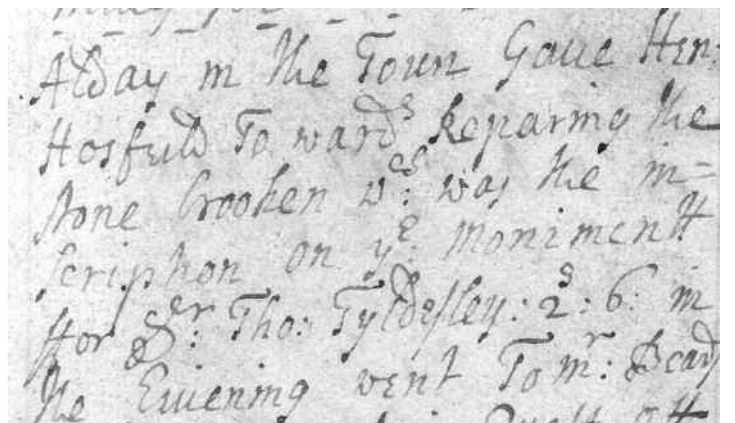 Alday in the Toun Gaue Hen:
Hosfeild To wards Reparing the
stone brooken wch: was the in=
scription on ye: moniment
ffor Sr: Tho: Tyldesley: 2s: 6: in
the Euiening went To mr: